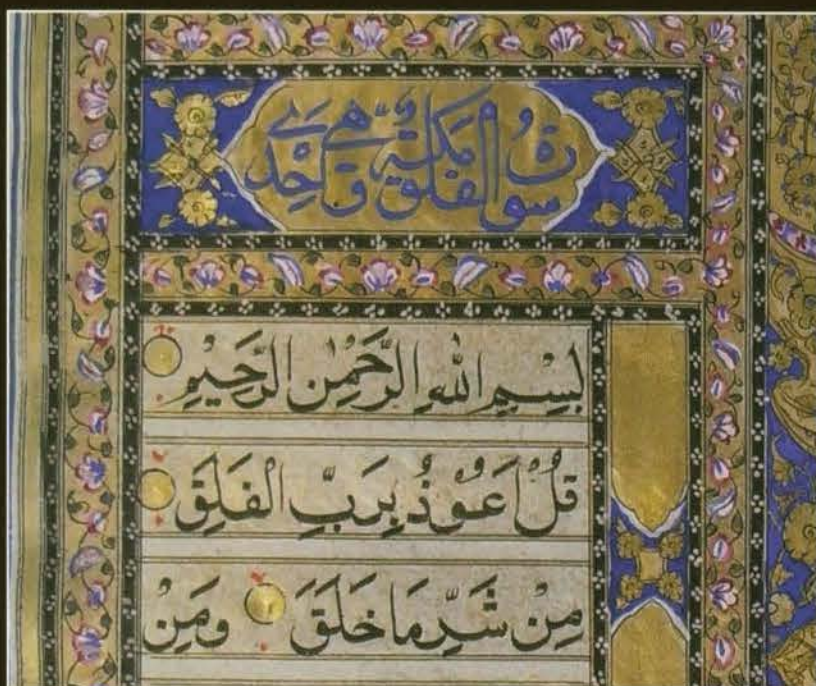 سورة الفلق مكية وهي واحدة
بِسْمِ اللهِ الرَّحْمٰنِ الرَّحِيْمِ
قُلْ اَعُوْذُ بِرَبِّ الْفَلَقِ
مِنْ شَرِّ مَا خَلَقَ وَمِنْ